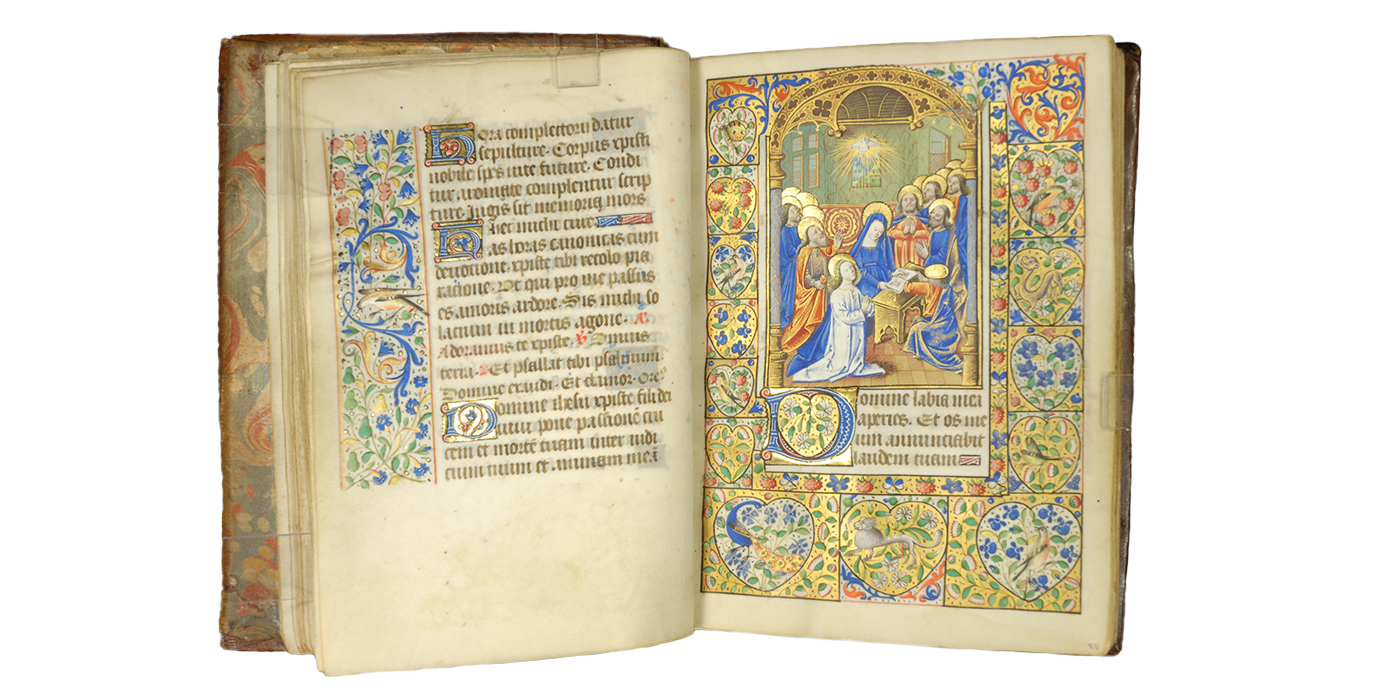 Hora completorii datur
sepulture. Corpus xpisti
nobile spes vite future. Condi
tur aromate complentur scrip
ture. Iugis sit memoria mors
hec michi cure
Has horas canonicas cum
devotione. xpiste tibi recolo pia
racione. Ut qui pro me passus
es amoris ardore. Sis michi so
lacium in mortis agone.
Adoramus te xpiste. Omnis
terra. Et psallat tibi psalmum
Domine exaudi. Et clamor. Ore
Domine ihesu xpiste fili dei
vivi pone passionē cru
cem et mortē tuam inter iudi
cium tuum et animam meā
Domine labia mea
aperies. Et os me
um annunciabit
laudem tuam